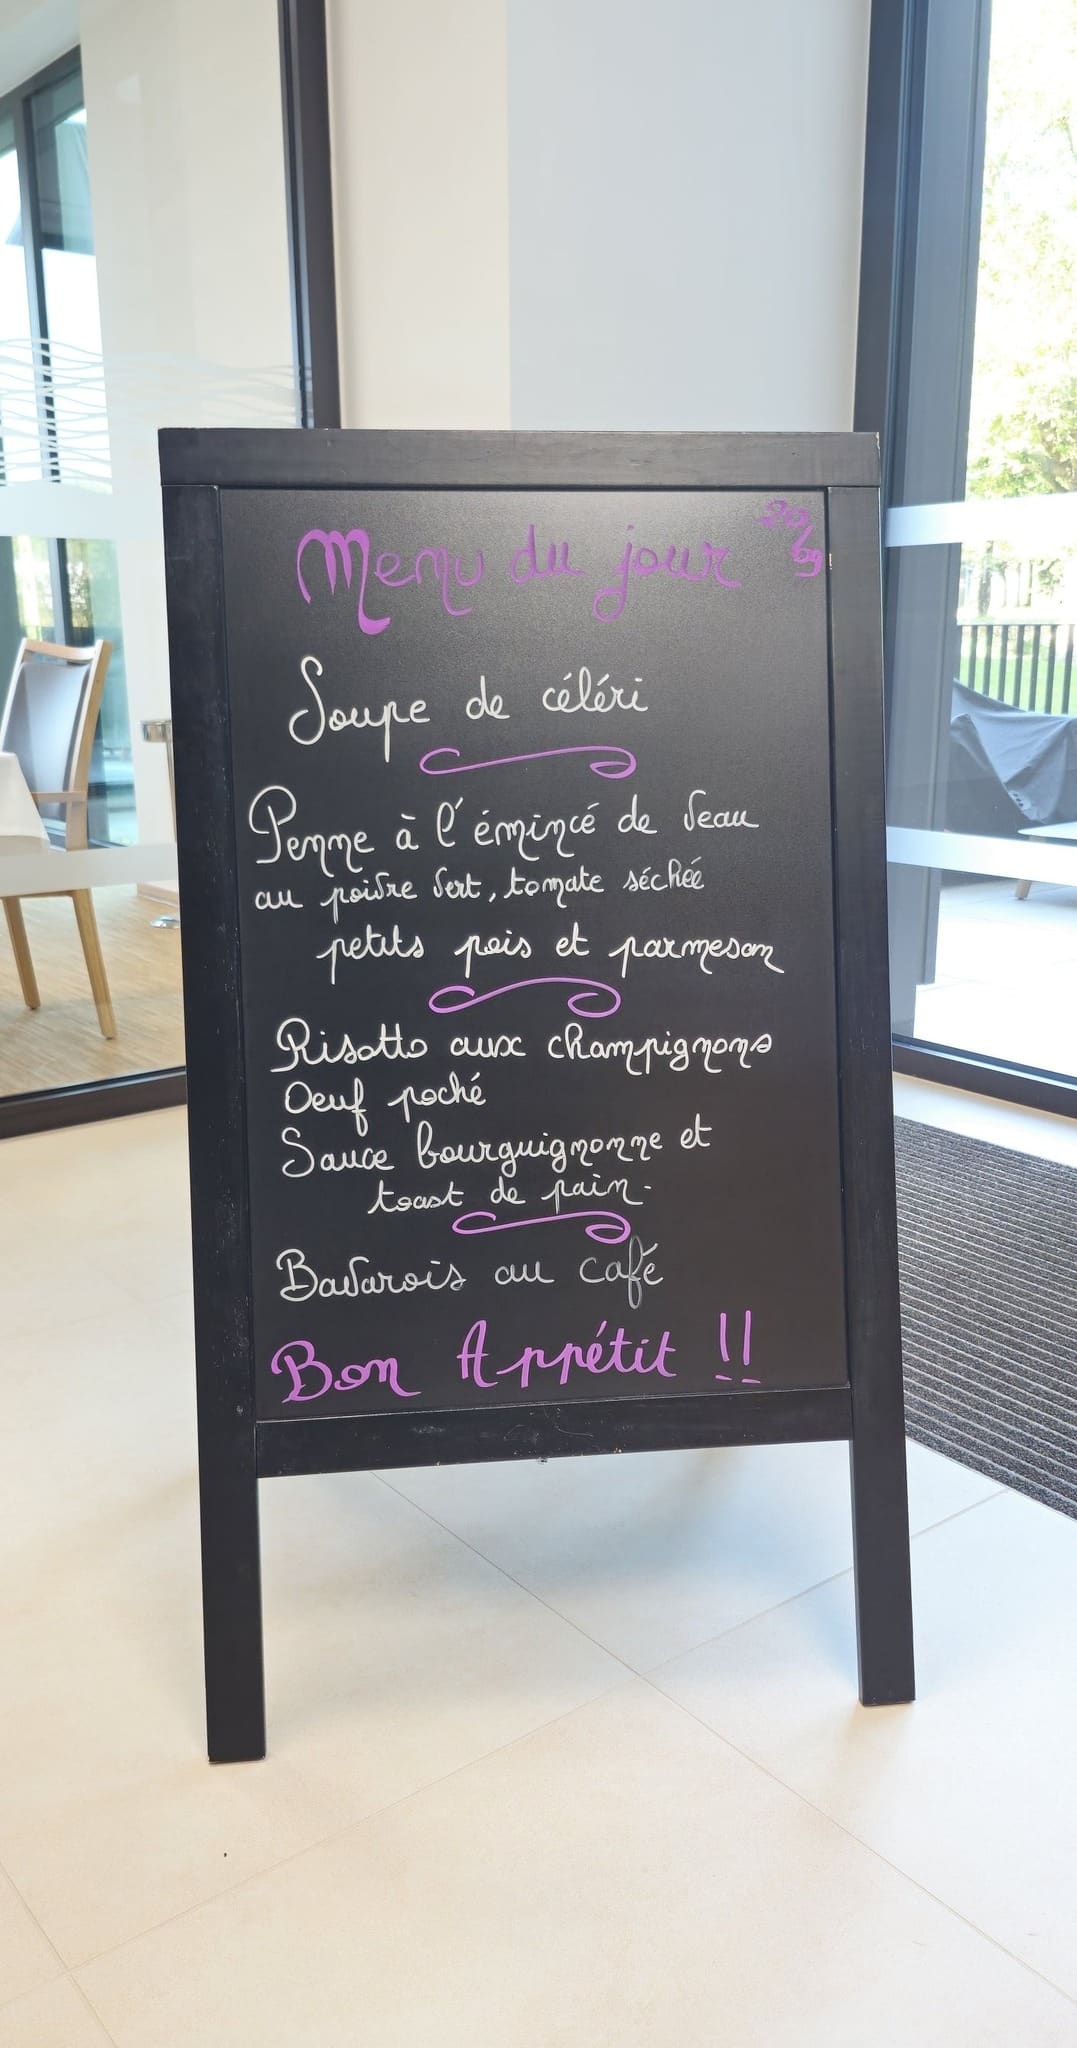 Menu du jour 20/09
Soupe de céléri
Penne à l'émincé de veau
au poivre vert, tomate séchée
petits pois et parmesan
Risotto aux champignons
Oeuf poché
Sauce bourguignonne et
toast de pain.
Bavarois au café
Bon Appétit !!